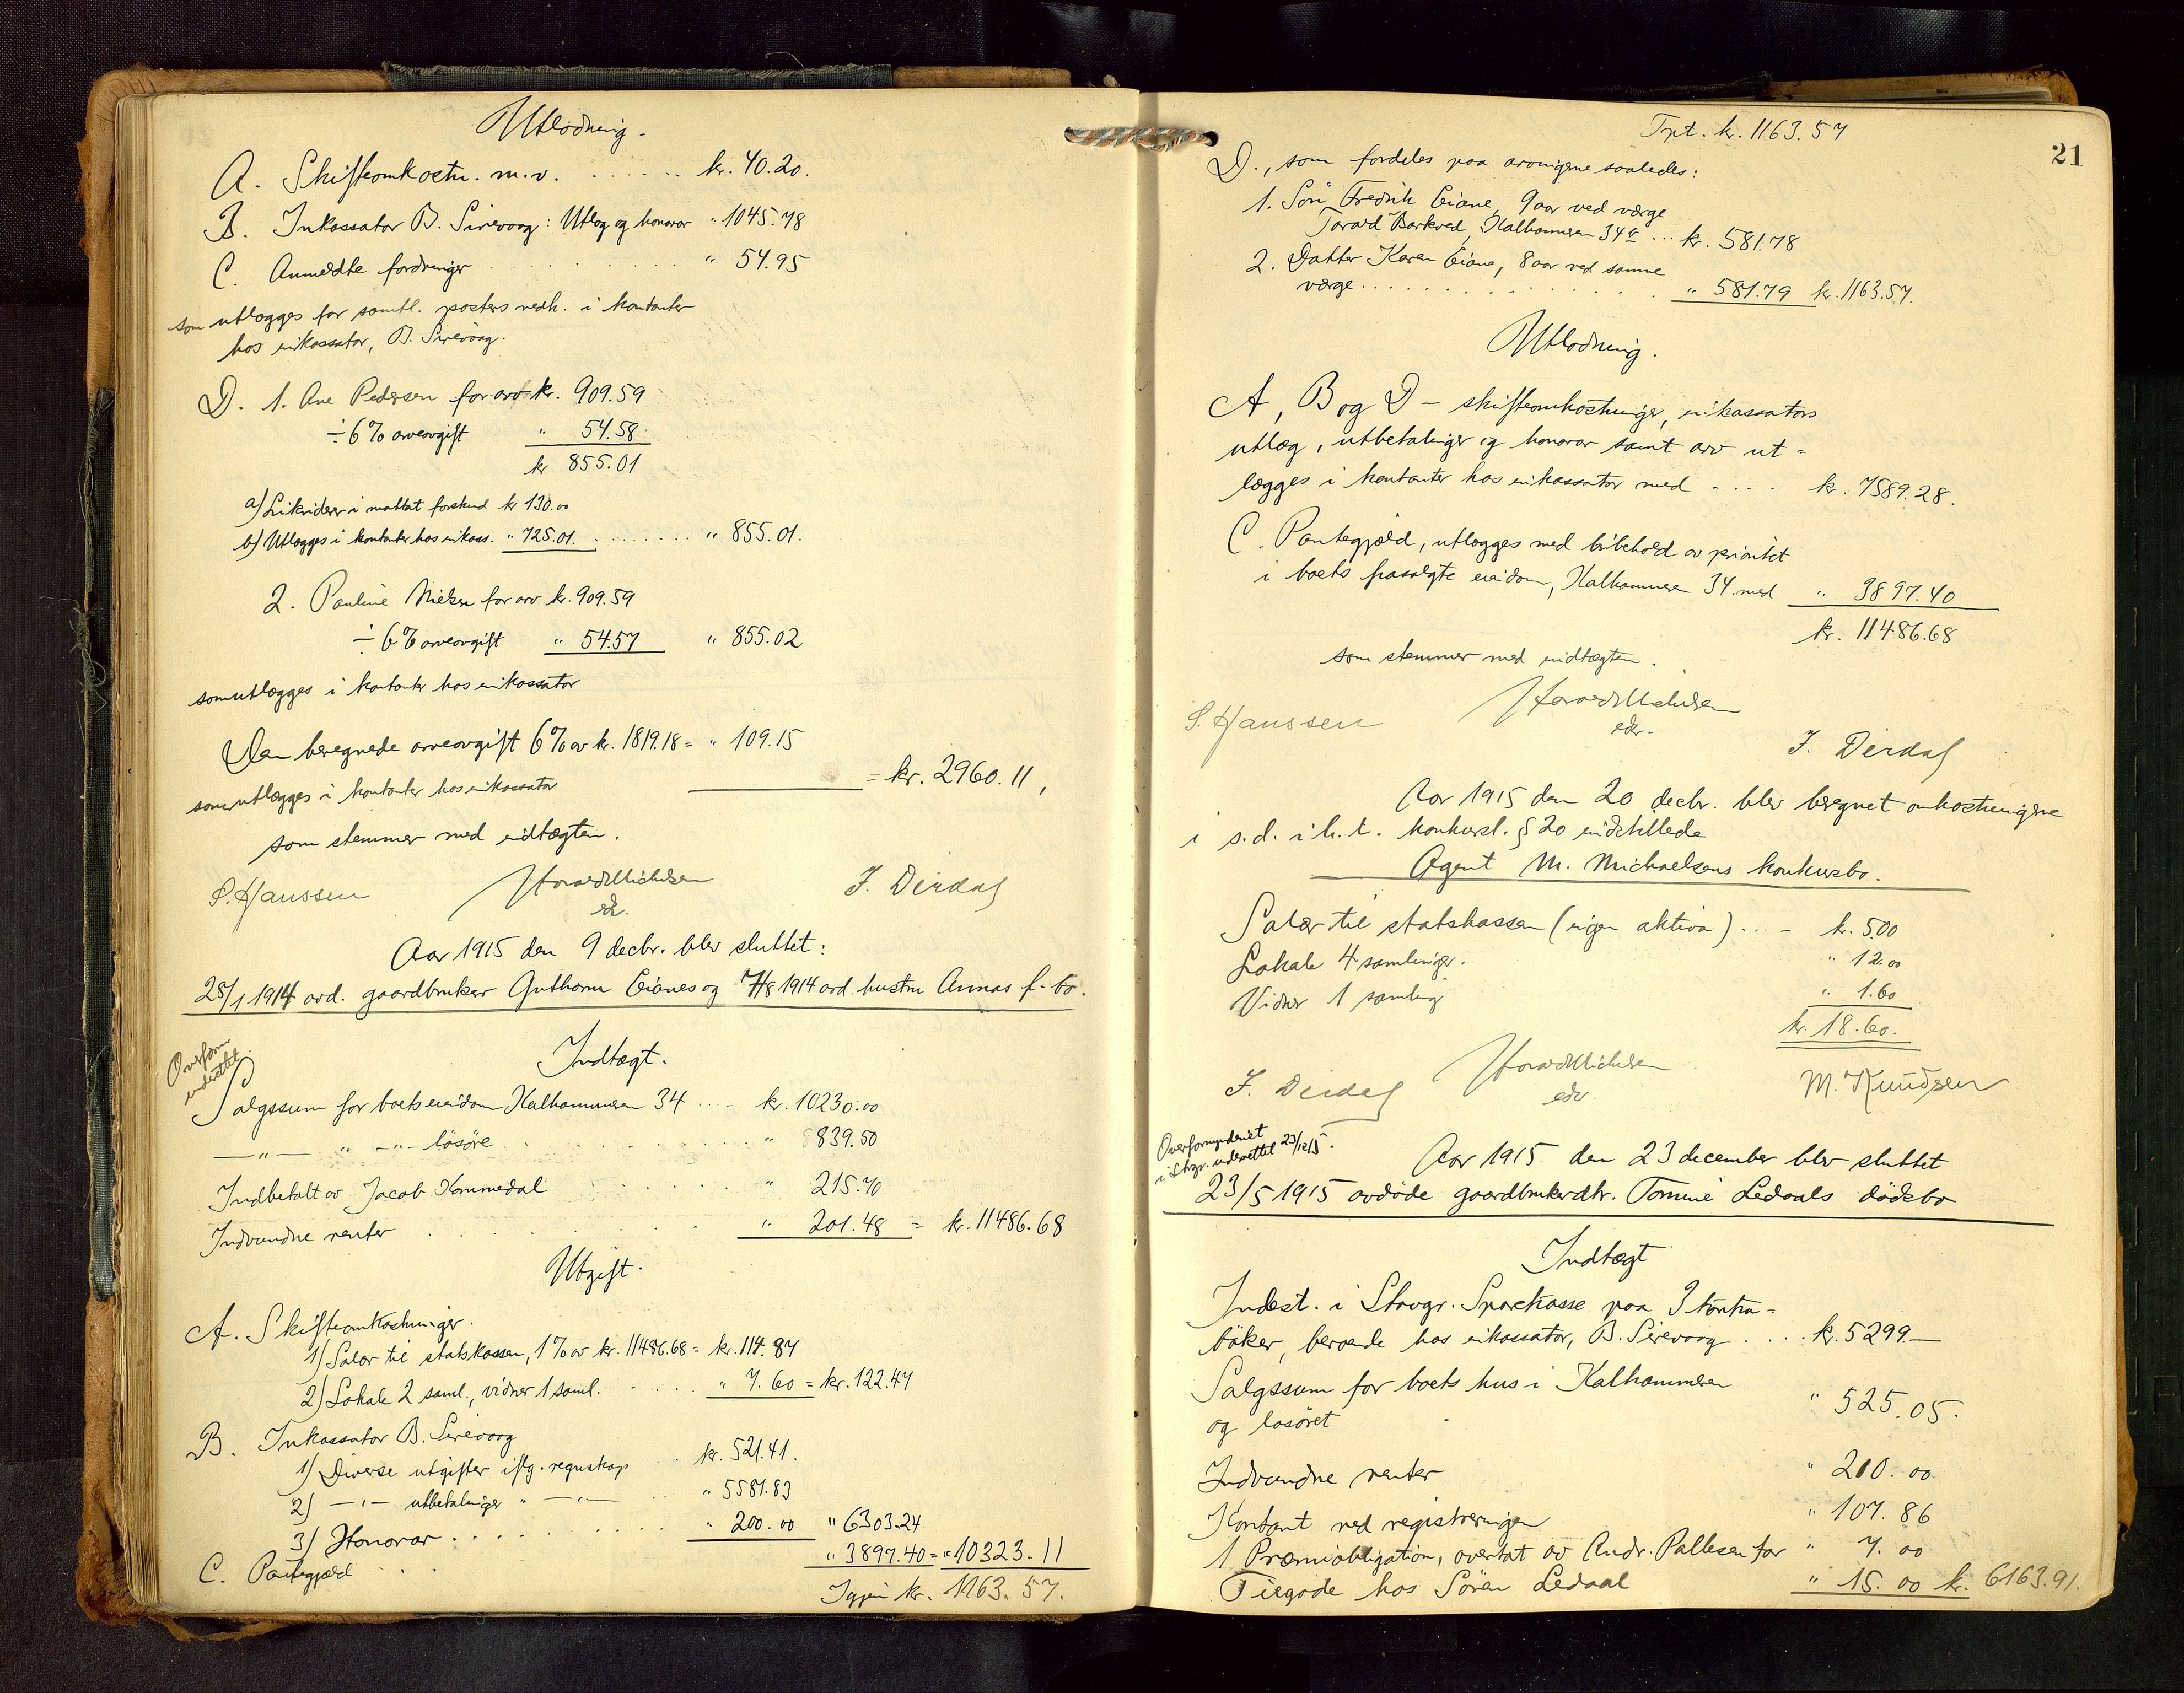 Utlodning.
A. Skifteomkostn. m.v. ...... kr. 40.20.
B. Inkassator B. Sirevaag: Utlæg og honorar " 1045.78
C. Anmeldte fordringer ........ " 54.95
som utlægges for samtl. posters vedk. i kontanter
hos inkassator, B. Sirevåg.
D. 1. Ane Pedersen for arv kr. 909.59
÷ 6% arveavgift " 54.58
kr 855.01
a) Likvideres i mottat forskud kr 130.00
b) Utlægges i kontanter hos inkass. " 725.01 ....... " 855.01.
2. Pauline Nielsen for arv kr. 909.59
÷ 6% arveavgift " 54.57 " 855.02
som utlægges i kontanter hos inkassator
Den beregnede arveavgift 6% av kr. 1819.18 = " 109.15
som utlægges i kontanter hos inkassator = kr. 2960.11,
som stemmer med indtægten.
S. Hanssen Harald Michelsen J. Dirdal
edsv.
Aar 1915 den 9 decbr. blev sluttet:
28/1 1914 avd. gaardbruker Guthorm Eianes og 7/8 1914 avd. hustru Annas f. bo.
Overform.
underrettet
Indtægt.
Salgssum for boets eiendom Kalhammeren 34 .... kr. 10230.00
—"— " —"— løsøre ........ " 839.50
Indbetalt av Jacob Kommedal ...... " 215.70
Indvundne renter ....... " 201.48 = kr. 11486.68
Utgift.
A. Skifteomkostninger.
1) Salær til statskassen, 1% av kr. 11486.68 = kr. 114.87
2) Lokale 2 saml., vidner 1 saml. ..... " 7.60 = kr. 122.47
B. Inkassator B. Sirevaag
1) Diverse utgifter iflg. regnskap .. kr. 521.41.
2) —"— utbetalinger " —"— .. " 5581.83
3) Honorar ......... " 200.00 " 6303.24
C. Pantegjæld ... " 3897.40 = " 10323.11
Igjen kr. 1163.57.
21
Tpt. kr. 1163.57
D., som fordeles paa arvingene saaledes:
1. Søn Fredrik Eiane, 9 aar ved værge
Tarald Barkved, Kalhammeren 34 ... kr. 581.78
2. Datter Karen Eiane, 8 aar ved samme
værge ............. " 581.79 kr. 1163.57.
Utlodning.
A, B og D – skifteomkostninger, inkassators
utlæg, utbetalinger og honorar samt arv ut-
lægges i kontanter hos inkassator med .... kr. 7589.28.
C. Pantegjæld, utlægges med bibehold av prioritet
i boets frasolgte eiendom, Kalhammeren 34 med " 3897.40
kr. 11486.68
som stemmer med indtægten.
S. Hanssen Harald Michelsen
edsv.
J. Dirdal
Aar 1915 den 20 decbr. blev beregnet omkostningene
i s.d. i h.t. konkursl. § 20 indstillede
Agent M. Michaelsens konkursbo.
Salær til statskassen (ingen aktiva) ... kr. 5.00
Lokale 4 samlinger. " 12.00
Vidner 1 samling " 1.60
kr. 18.60.
J. Dirdal Harald Michelsen M. Knudsen
edsv.
Overformynderiet
i Stvgr. underrettet 23/12 15.
Aar 1915 den 23 december blev sluttet
23/5 1915 avdøde gaardbrukerdtr. Tomine Ledaals dødsbo
Indtægt
Indest. i Stavgr. Sparekasse paa 3 kontra-
bøker, beroende hos inkassator, B. Sirevaag .... kr. 5299.—
Salgssum for boets hus i Kalhammeren
og løsøret " 525.05.
Indvundne renter " 210.00
Kontant ved registreringen " 107.86
1 Præmieobligation, overtat av Andr. Pallesen for " 7.00
Tilgode hos Søren Ledaal " 15.00 kr. 6163.91.